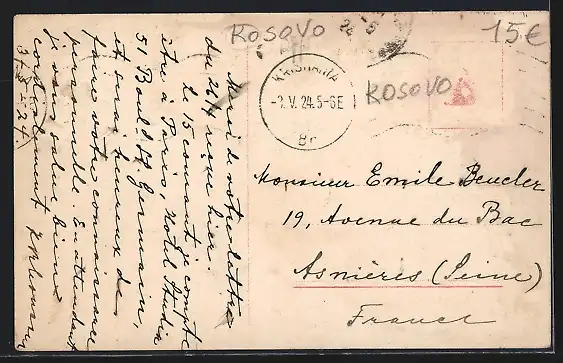 KOSOVO
15€
KRISTIANIA
-2.V.24.5-6E
Br
KOSOVO
Monsieur Emile Beucler
19, Avenue du Bac
Asnières (Seine)
France
Merci de votre lettre
du 26/4 reçue hier.
le 15 courant je compte
être à Paris, Hotel
51 Boul. St Germain,
et serai heureux de
faire votre connaissance
personnelle. En attendant
je vous salue bien
cordialement